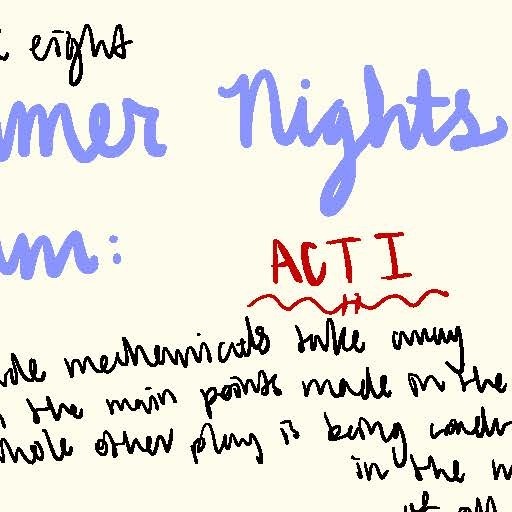 eight
mer Nights
um:
ACT I
ude mechanicals take away
the main points made in the
hole other play is being condu
in the
it all